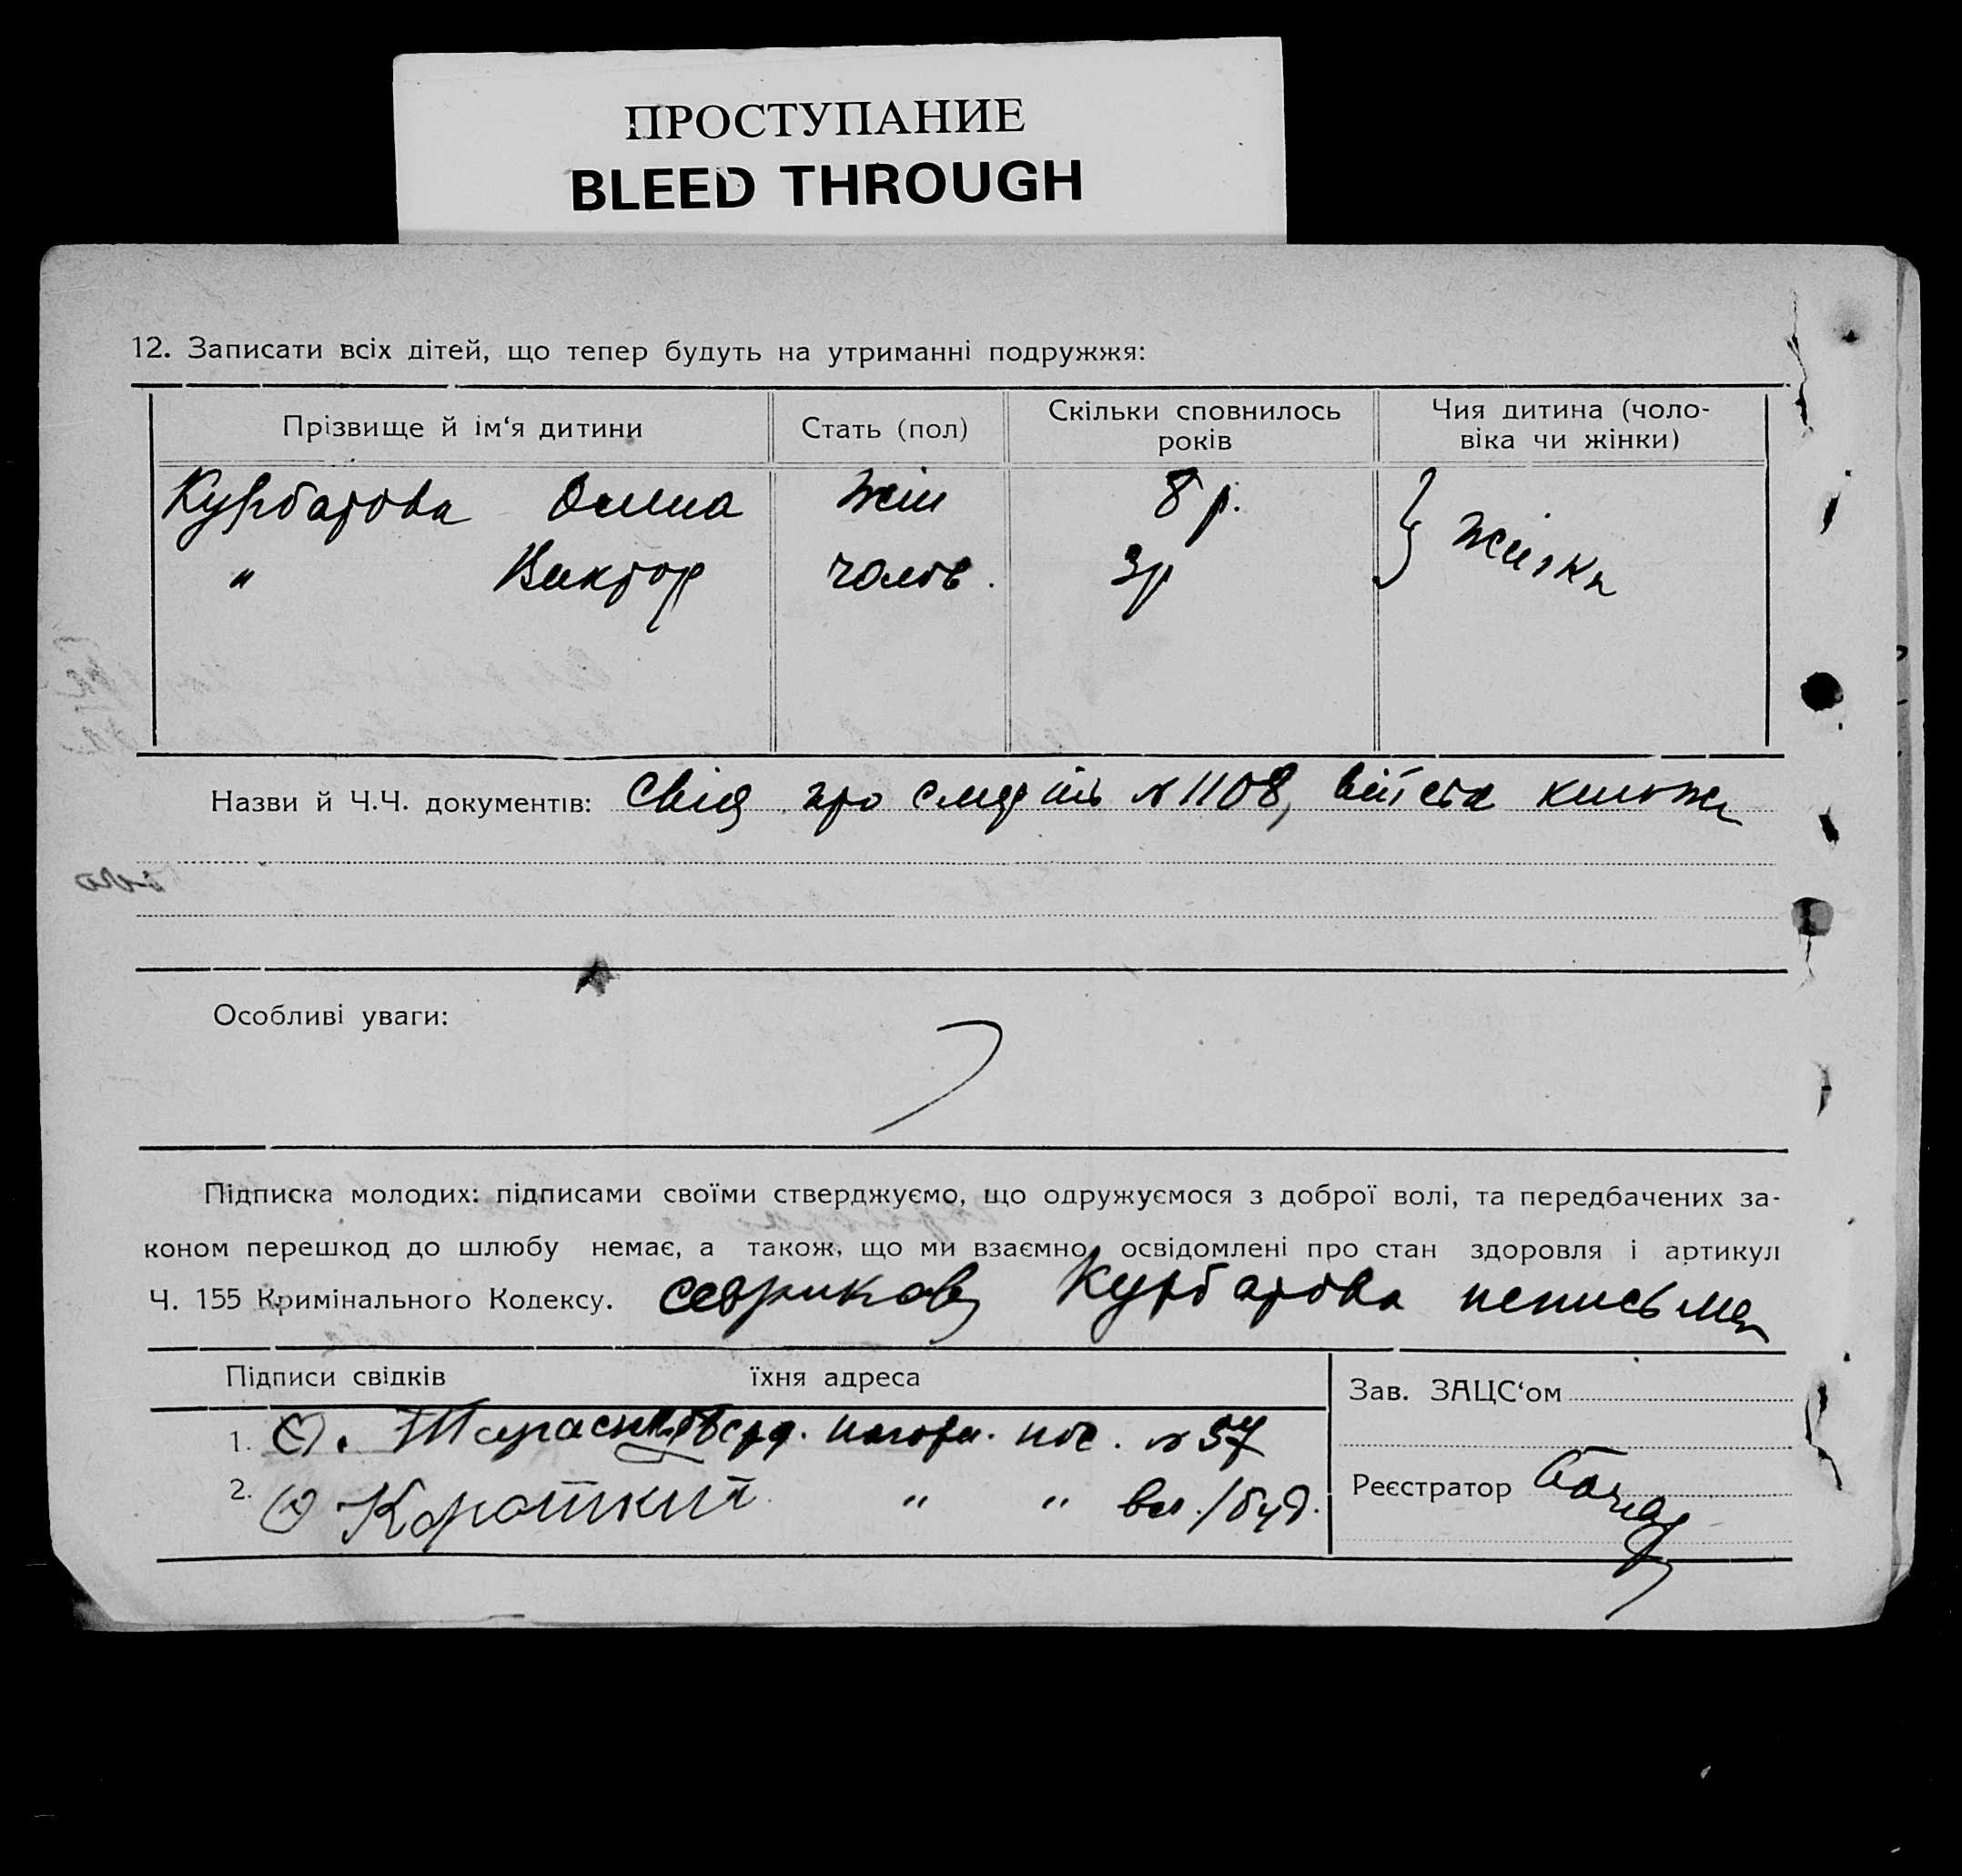 ПРОСТУПАНИЕ
BLEED THROUGH
12. Записати всіх дітей, що тепер будуть на утриманні подружжя:
Прізвище й ім‘я дитини
Стать (пол)
Скільки сповнилось років
Чия дитина (чоловіка чи жінки)
Курбатова жін 8 р.
" Виктор чолов. 3р } жінки
Назви й Ч.Ч. документів: Свід про смерть № 1108, військ книжк
Особливі уваги:
Підписка молодих: підписами своїми стверджуємо, що одружуємося з доброї волі, та передбачених за-
коном перешкод до шлюбу немає, а також, що ми взаємно освідомлені про стан здоровля і артикул
Ч. 155 Кримінального Кодексу. Курбатова неписьмен
Підписи свідків їхня адреса
Зав. ЗАЦС‘ом
1. № 57
2. Короткий " " буд.
Реєстратор